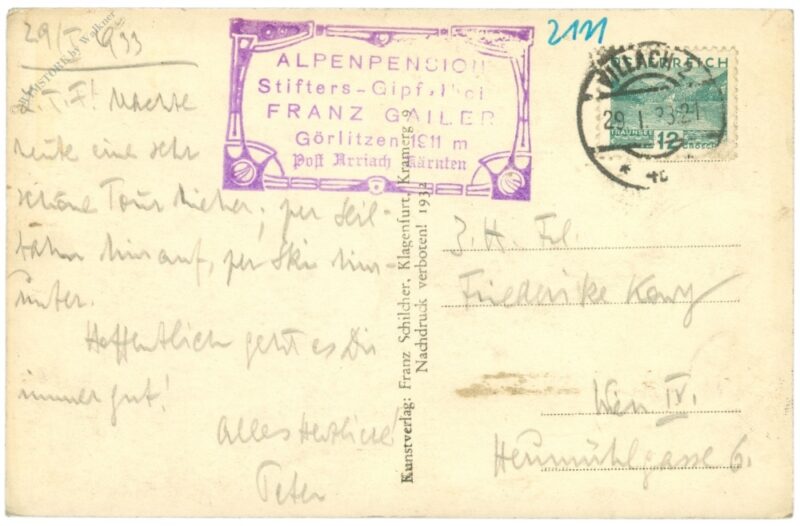 29/I. 1933
L. F. F.! Machte
heute eine sehr
schöne Tour hieher; per Seil-
bahn hinauf, per Ski hin-
unter.
Hoffentlich geht es Dir
immer gut!
Alles Herzliche!
Peter
ALPENPENSION
Stifters-Gipfel
FRANZ GAILER
Görlitzen 1911 m
Post Arriach Kärnten
Kunstverlag: Franz Schilcher, Klagenfurt, Kramerg 9
Nachdruck verboten! 1932
2121
VILLACH 2
29. I. 33.21
* 4b
ÖSTERREICH
TRAUNSEE
12
GROSCHEN
Z. H. Frl.
Friederike
Wien IV.
Heumühlgasse 6.
HISTORK by Walkner